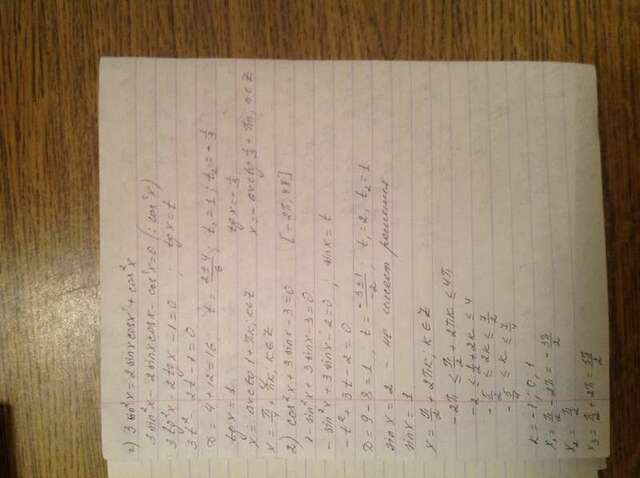 1) 3 sin²x = 2 sinx cosx + cos²x
3 sin²x - 2 sinx cosx - cos²x = 0 (: cos²x)
3 tg²x - 2 tgx - 1 = 0 ; tgx = t
3t² - 2t - 1 = 0
D = 4 + 12 = 16 t = (2 ± 4)/6 ; t₁ = 1 ; t₂ = -1/3
tgx = 1 tgx = -1/3
x = arctg 1 + πk, k∈Z x = -arctg 1/3 + πn, n∈Z
x = π/4 + πk, k∈Z
2) cos²x + 3 sinx - 3 = 0 [-2π; 4π]
1 - sin²x + 3 sinx - 3 = 0
- sin²x + 3 sinx - 2 = 0 ; sinx = t
- t² + 3t - 2 = 0
D = 9 - 8 = 1, t = (-3 ± 1)/-2 ; t₁ = 2, t₂ = 1
sinx = 2 - не имеет решения
sinx = 1
x = π/2 + 2πk, k∈Z
-2π ≤ π/2 + 2πk ≤ 4π
-2 ≤ 1/2 + 2k ≤ 4
-5/2 ≤ 2k ≤ 7/2
-5/4 ≤ k ≤ 7/4
k = -1; 0; 1
x₁ = π/2 - 2π = -3π/2
x₂ = π/2
x₃ = π/2 + 2π = 5π/2